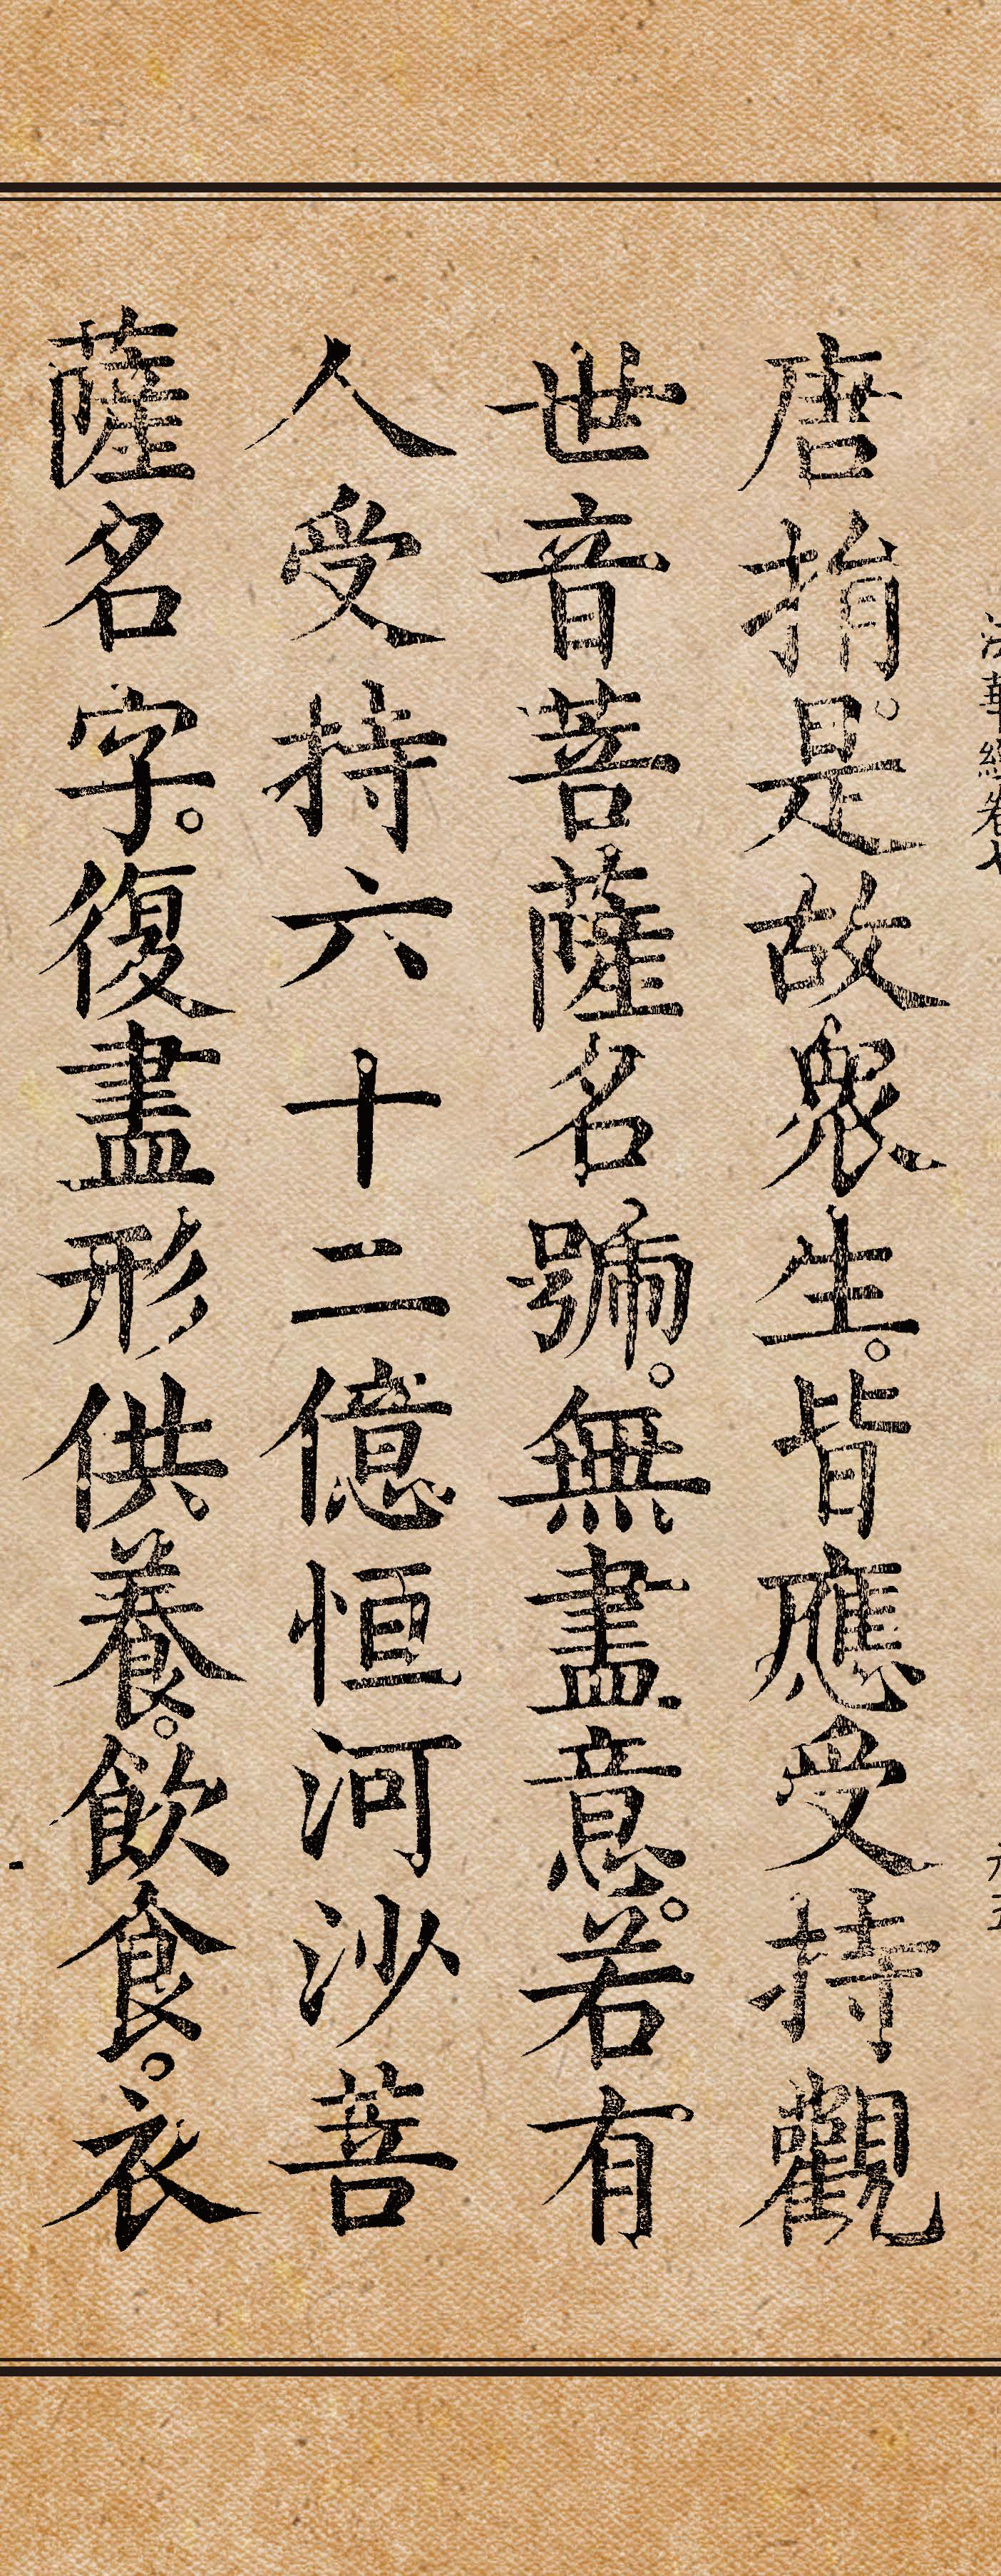 法華經卷七
唐捐。是故眾生。皆應受持觀
世音菩薩名號。無盡意。若有
人受持六十二億恒河沙菩
薩名字。復盡形供養。飲食。衣